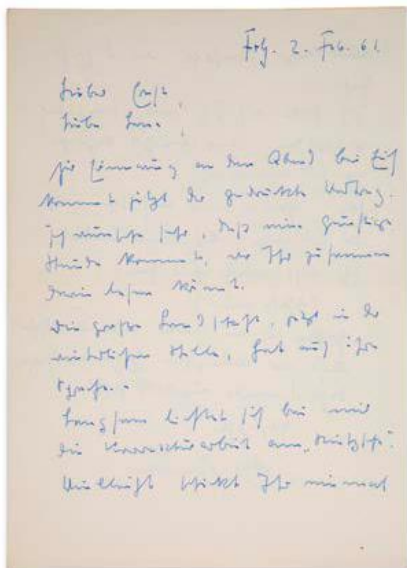 Frbg. 2. Feb. 61
Lieber Ernst,
liebe Lene,
zur Erinnerung an den Abend bei Euch
kommt jetzt der gedruckte Vortrag.
Ich wünsche sehr, daß eine günstige
Stunde kommt, wo Ihr zusammen
darin lesen könnt.
Die große Landschaft, jetzt in der
winterlichen Stille, hat auch ihre
Sprache.
Langsam lichtet sich bei mir
die Korrekturarbeit am „Nietzsche“.
Vielleicht schickt Ihr einmal